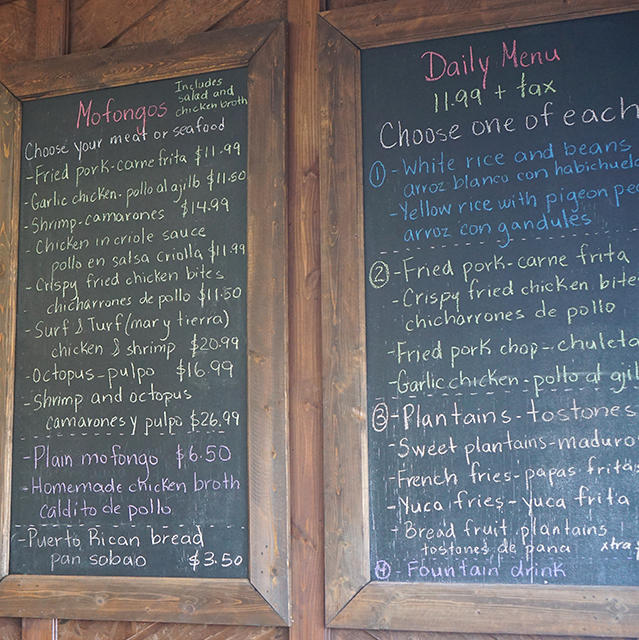 Mofongos
Includes
salad and
chicken broth
Choose your meat or seafood
- Fried pork - carne frita $11.99
- Garlic chicken - pollo al ajillo $11.50
- Shrimp - camarones $14.99
- Chicken in criole sauce
pollo en salsa criolla $11.99
- Crispy fried chicken bites
chicharrones de pollo $11.50
- Surf & Turf (mar y tierra)
chicken & shrimp $20.99
- Octopus - pulpo $16.99
- Shrimp and octopus
camarones y pulpo $26.99
- Plain mofongo $6.50
- Homemade chicken broth
caldito de pollo
- Puerto Rican bread
pan sabao $3.50
Daily Menu
11.99 + tax
Choose one of each
1 - White rice and beans
arroz blanco con habichuela
- Yellow rice with pigeon pe
arroz con gandules
2 - Fried pork - carne frita
- Crispy fried chicken bites
chicharrones de pollo
- Fried pork chop - chuleta
- Garlic chicken - pollo al ajil
3 - Plantains - tostones
- Sweet plantains - maduro
- French fries - papas fritas
- Yuca fries - yuca frita
- Bread fruit plantains
tostones de pana xtra
4 - Fountain drink